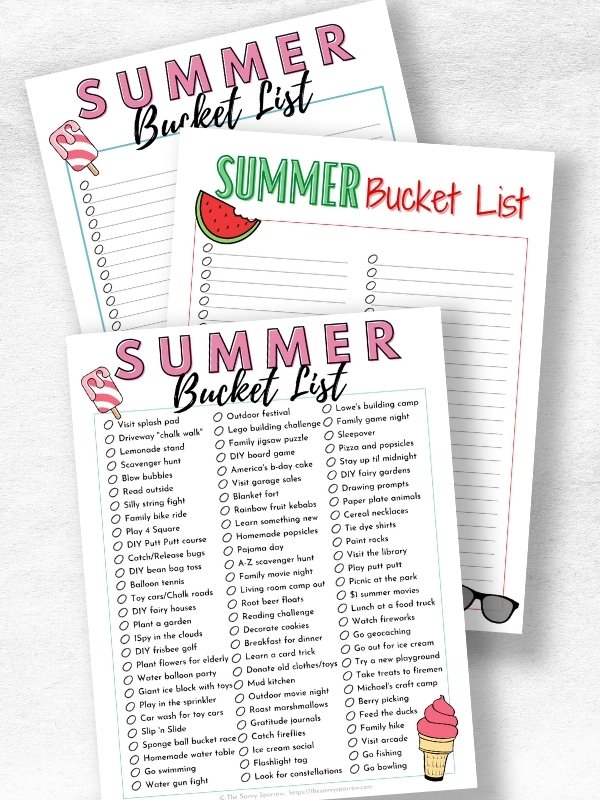 SUMMER
Bucket List
SUMMER Bucket List
SUMMER
Bucket List
Visit splash pad
Driveway "chalk walk"
Lemonade stand
Scavenger hunt
Blow bubbles
Read outside
Silly string fight
Family bike ride
Play 4 Square
DIY Putt Putt course
Catch/Release bugs
DIY bean bag toss
Balloon tennis
Toy cars/Chalk roads
DIY fairy houses
Plant a garden
ISpy in the clouds
DIY frisbee golf
Plant flowers for elderly
Water balloon party
Giant ice block with toys
Play in the sprinkler
Car wash for toy cars
Slip 'n Slide
Sponge ball bucket race
Homemade water table
Go swimming
Water gun fight
Outdoor festival
Lego building challenge
Family jigsaw puzzle
DIY board game
America's b-day cake
Visit garage sales
Blanket fort
Rainbow fruit kebabs
Learn something new
Homemade popsicles
Pajama day
A-Z scavenger hunt
Family movie night
Living room camp out
Root beer floats
Reading challenge
Decorate cookies
Breakfast for dinner
Learn a card trick
Donate old clothes/toys
Mud kitchen
Outdoor movie night
Roast marshmallows
Gratitude journals
Catch fireflies
Ice cream social
Flashlight tag
Look for constellations
Lowe's building camp
Family game night
Sleepover
Pizza and popsicles
Stay up til midnight
DIY fairy gardens
Drawing prompts
Paper plate animals
Cereal necklaces
Tie dye shirts
Paint rocks
Visit the library
Play putt putt
Picnic at the park
$1 summer movies
Lunch at a food truck
Watch fireworks
Go geocaching
Go out for ice cream
Try a new playground
Take treats to firemen
Michael's craft camp
Berry picking
Feed the ducks
Family hike
Visit arcade
Go fishing
Go bowling
© The Savvy Sparrow, https://thesavvysparrow.com